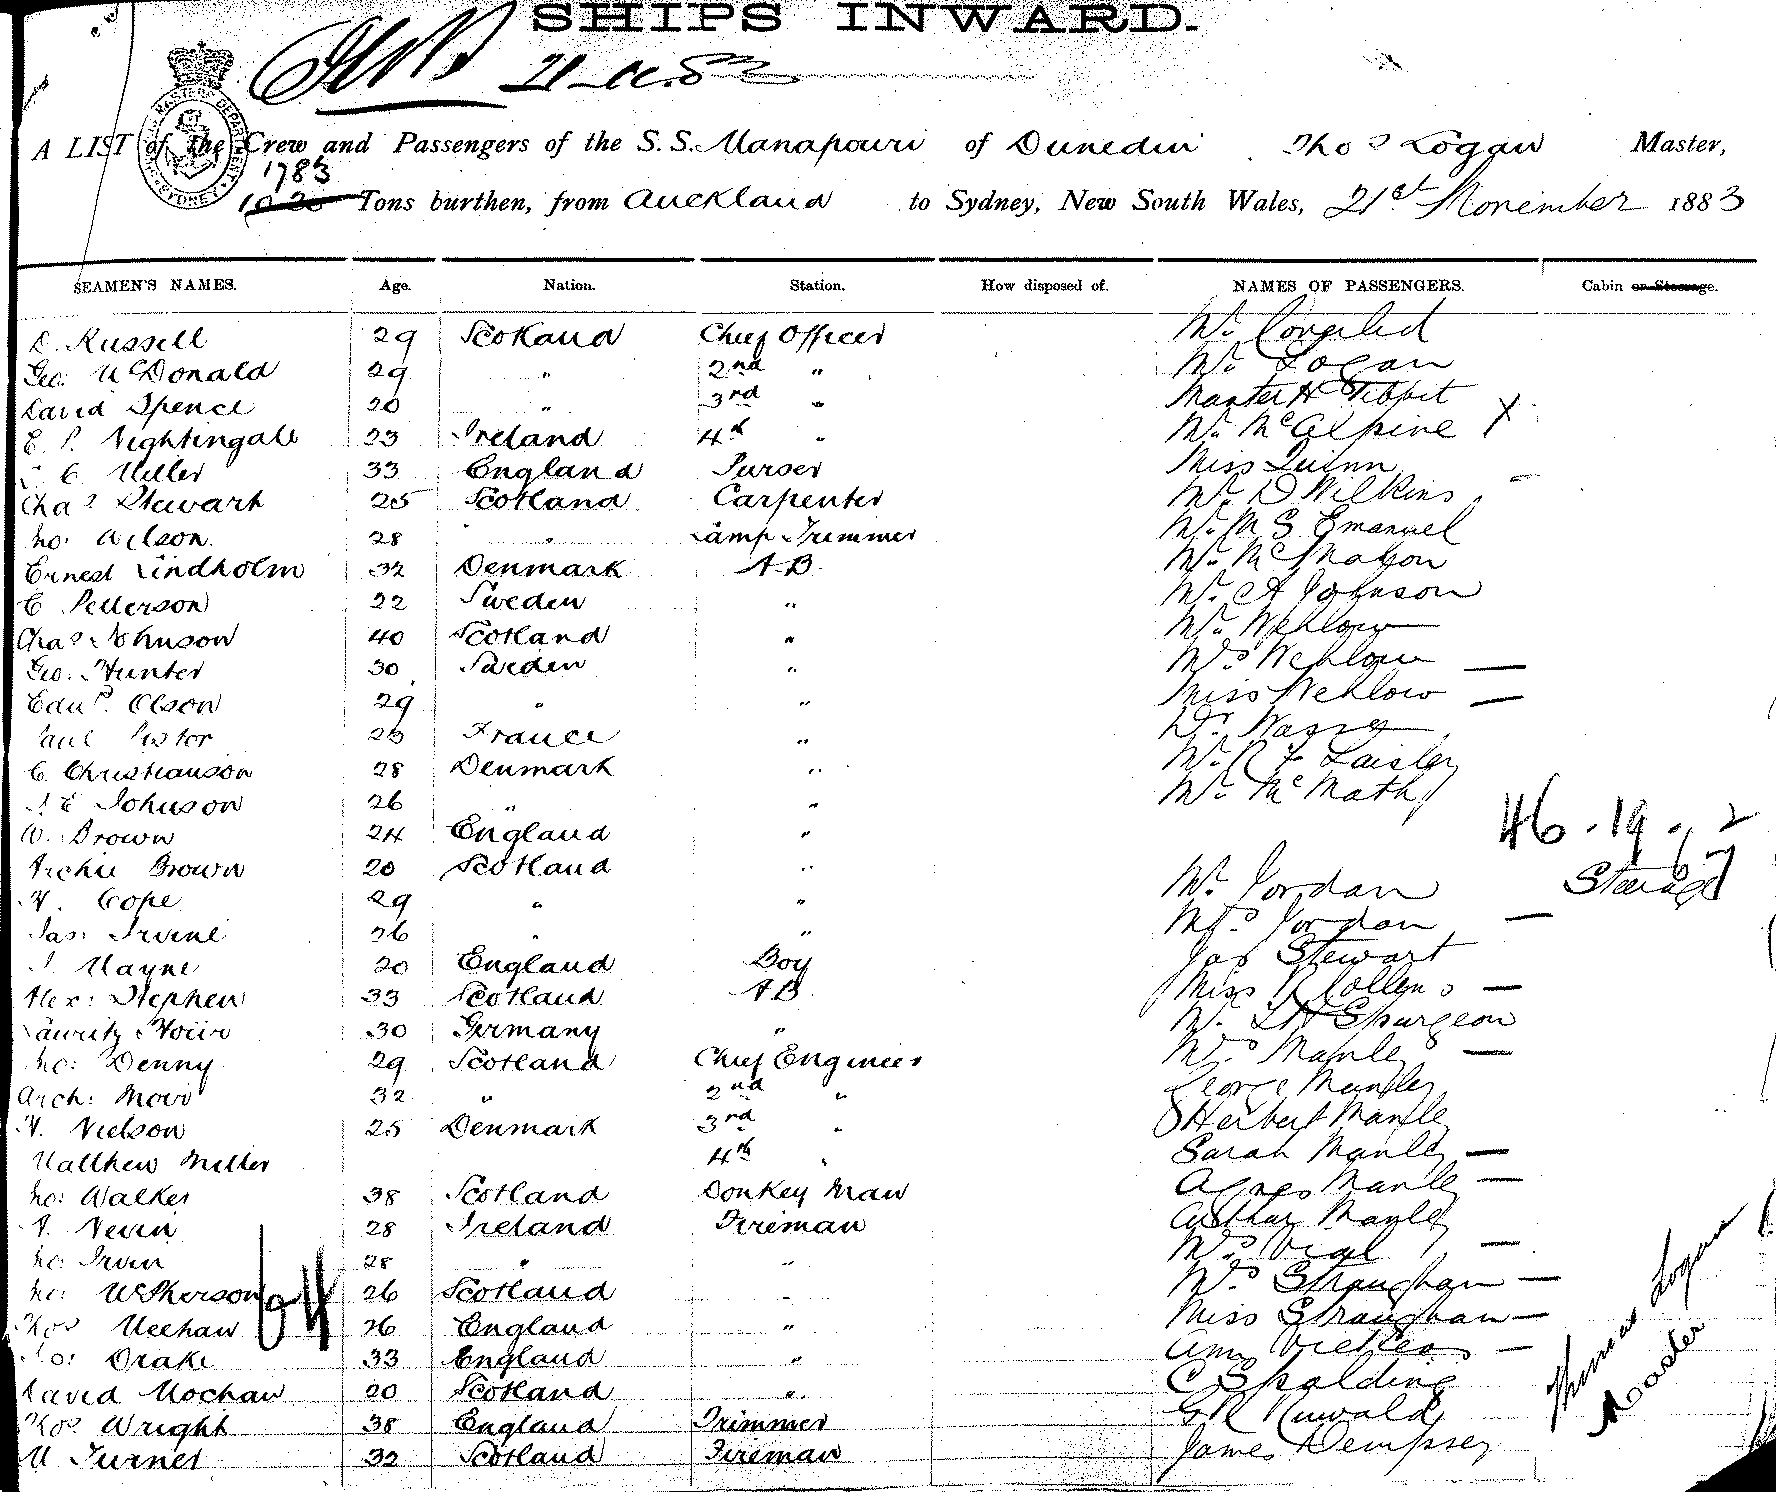 SHIPS INWARD.
A LIST of the Crew and Passengers of the S.S. Manapouri of Dunedin Thos Logan Master,
1783
Tons burthen, from Auckland to Sydney, New South Wales, 21st November 1883
SEAMEN'S NAMES. Age. Nation. Station. How disposed of. NAMES OF PASSENGERS. Cabin or Steerage.
D. Russell 29 Scotland Chief Officer Mr.
Geo: McDonald 29 " 2nd " Mr. Logan
David Spence 20 " 3rd " Master H Tibbit
E. P. Nightingale 23 Ireland 4th " Mr. McAlpine X
C Miller 33 England Purser Miss Quinn
Chas Stewart 25 Scotland Carpenter Mr. D Wilkins
Jno: Wilson 28 " Lamp Trimmer Mr. M S Emanuel
Ernest Lindholm 32 Denmark A.B. Mr. McMahon
C Petterson 22 Sweden " Mr. A Johnson
Chas Johnson 40 Scotland " Mr. Wehlow
Geo. Hunter 30 Sweden " Mrs Wehlow —
Edwd. Olson 29 " " Miss Wehlow —
Paul Pistor 26 France " Dr.
C. Christianson 28 Denmark " Mr. R F Laisley
Johnson 26 " " Mr. McMath
W. Brown 24 England " 46.19.
Archie Brown 20 Scotland " Mr. Jordan Steerage
Cope 29 " " Mrs Jordan —
Jas: Irvine 26 " " Jas Stewart
Mayne 20 England Boy Miss R Collens —
Alex: Stephen 33 Scotland A.B. Mr. Spurgeon
Lauritz 30 Germany " Mrs Manley —
Jno: Denny 29 Scotland Chief Engineer George Manley
Arch: Moir 32 " 2nd " Herbert Manley
Nielson 25 Denmark 3rd " Sarah Manley —
Matthew Miller 4th " Agnes Manley —
Jno: Walker 38 Scotland Donkey Man Arthur Manley
Nevin 28 Ireland Fireman Mrs Vial —
Jno: Irvin 28 " " Mrs Straughan —
Jno: McPherson 26 Scotland " Miss Straughan —
Thos Meehan 26 England " Amy —
Jno: Drake 33 England " C Spalding
David Mochan 20 Scotland " G R
Thos Wright 38 England Trimmer James Dempsey
M Turner 32 Scotland Fireman
64
Thomas Logan
Master